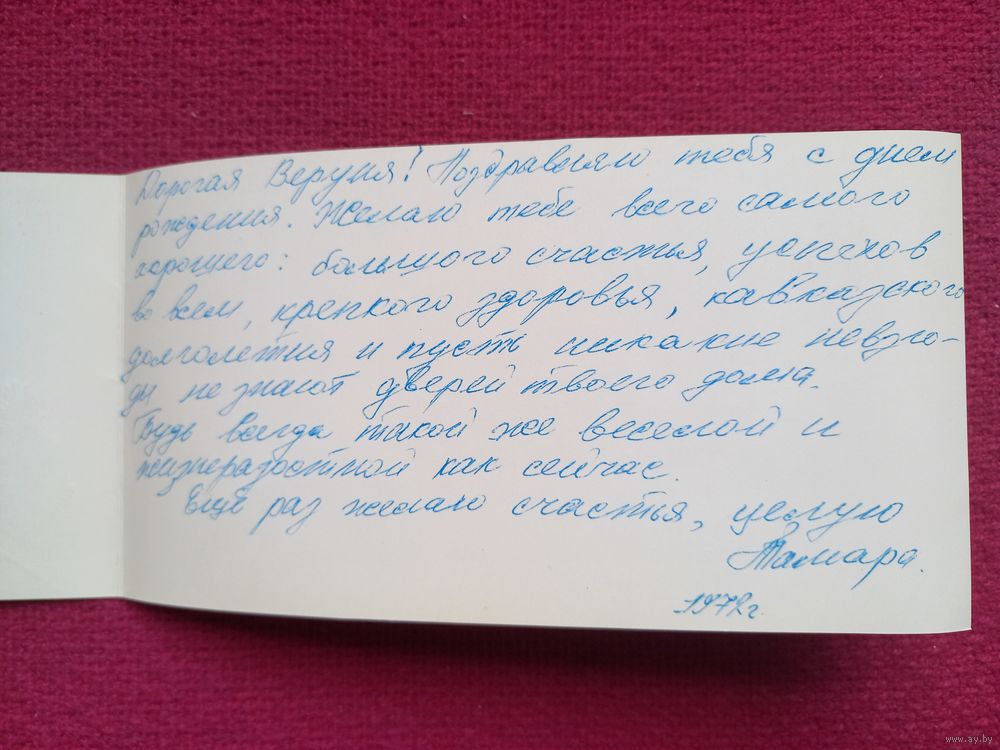 Дорогая Веруня! Поздравляю тебя с днем
рождения. Желаю тебе всего самого
хорошего: большого счастья, успехов
во всем, крепкого здоровья, кавказского
долголетия и пусть никакие невзго-
ды не знают дверей твоего дома.
Будь всегда такой же веселой и
жизнерадостной как сейчас.
Ещё раз желаю счастья, целую
Тамара.
1972г.
www.ay.by